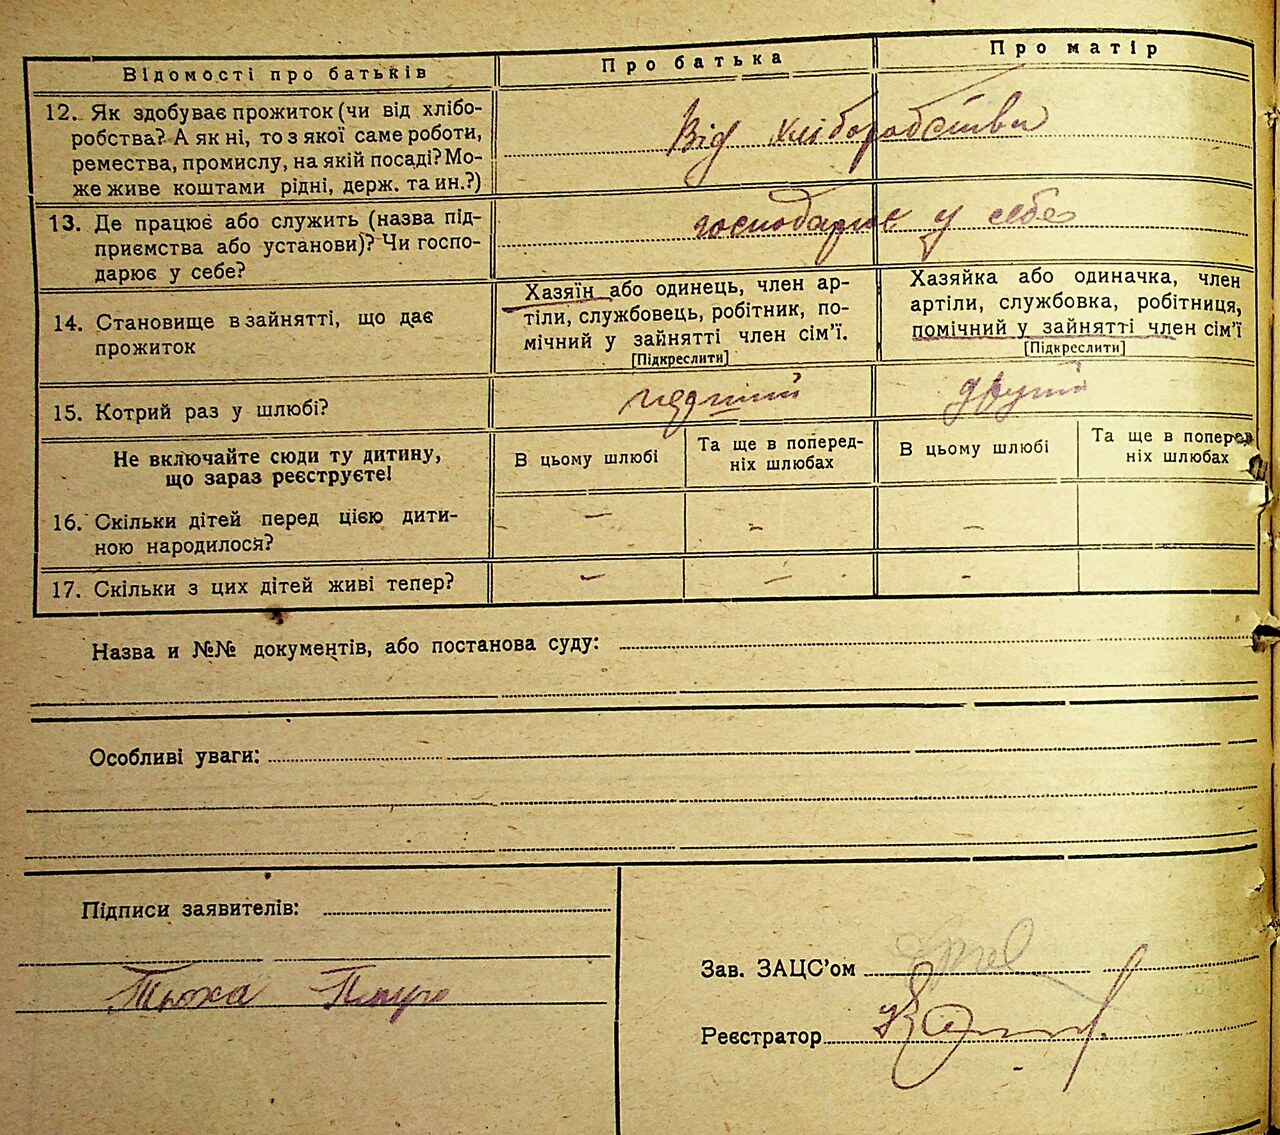 Відомості про батьків
Про батька
Про матір
12. Як здобуває прожиток (чи від хлібо-
робства? А як ні, то з якої саме роботи,
ремества, промислу, на якій посаді? Мо-
же живе коштами рідні, держ. та ин.?)
Від хліборобства
13. Де працює або служить (назва під-
приємства або установи)? Чи госпо-
дарює у себе?
господарює у себе
14. Становище в зайнятті, що дає
прожиток
Хазяїн або одинець, член ар-
тіли, службовець, робітник, по-
мічний у зайнятті член сім'ї.
[Підкреслити]
Хазяйка або одиначка, член
артіли, службовка, робітниця,
помічний у зайнятті член сім'ї
[Підкреслити]
15. Котрий раз у шлюбі?
другий
Не включайте сюди ту дитину,
що зараз реєструєте!
В цьому шлюбі
Та ще в поперед-
ніх шлюбах
В цьому шлюбі
Та ще в поперед-
ніх шлюбах
16. Скільки дітей перед цією дити-
ною народилося?
– – –
17. Скільки з цих дітей живі тепер?
– – –
Назва и №№ документів, або постанова суду:
Особливі уваги:
Підписи заявителів:
Зав. ЗАЦС'ом
Реєстратор